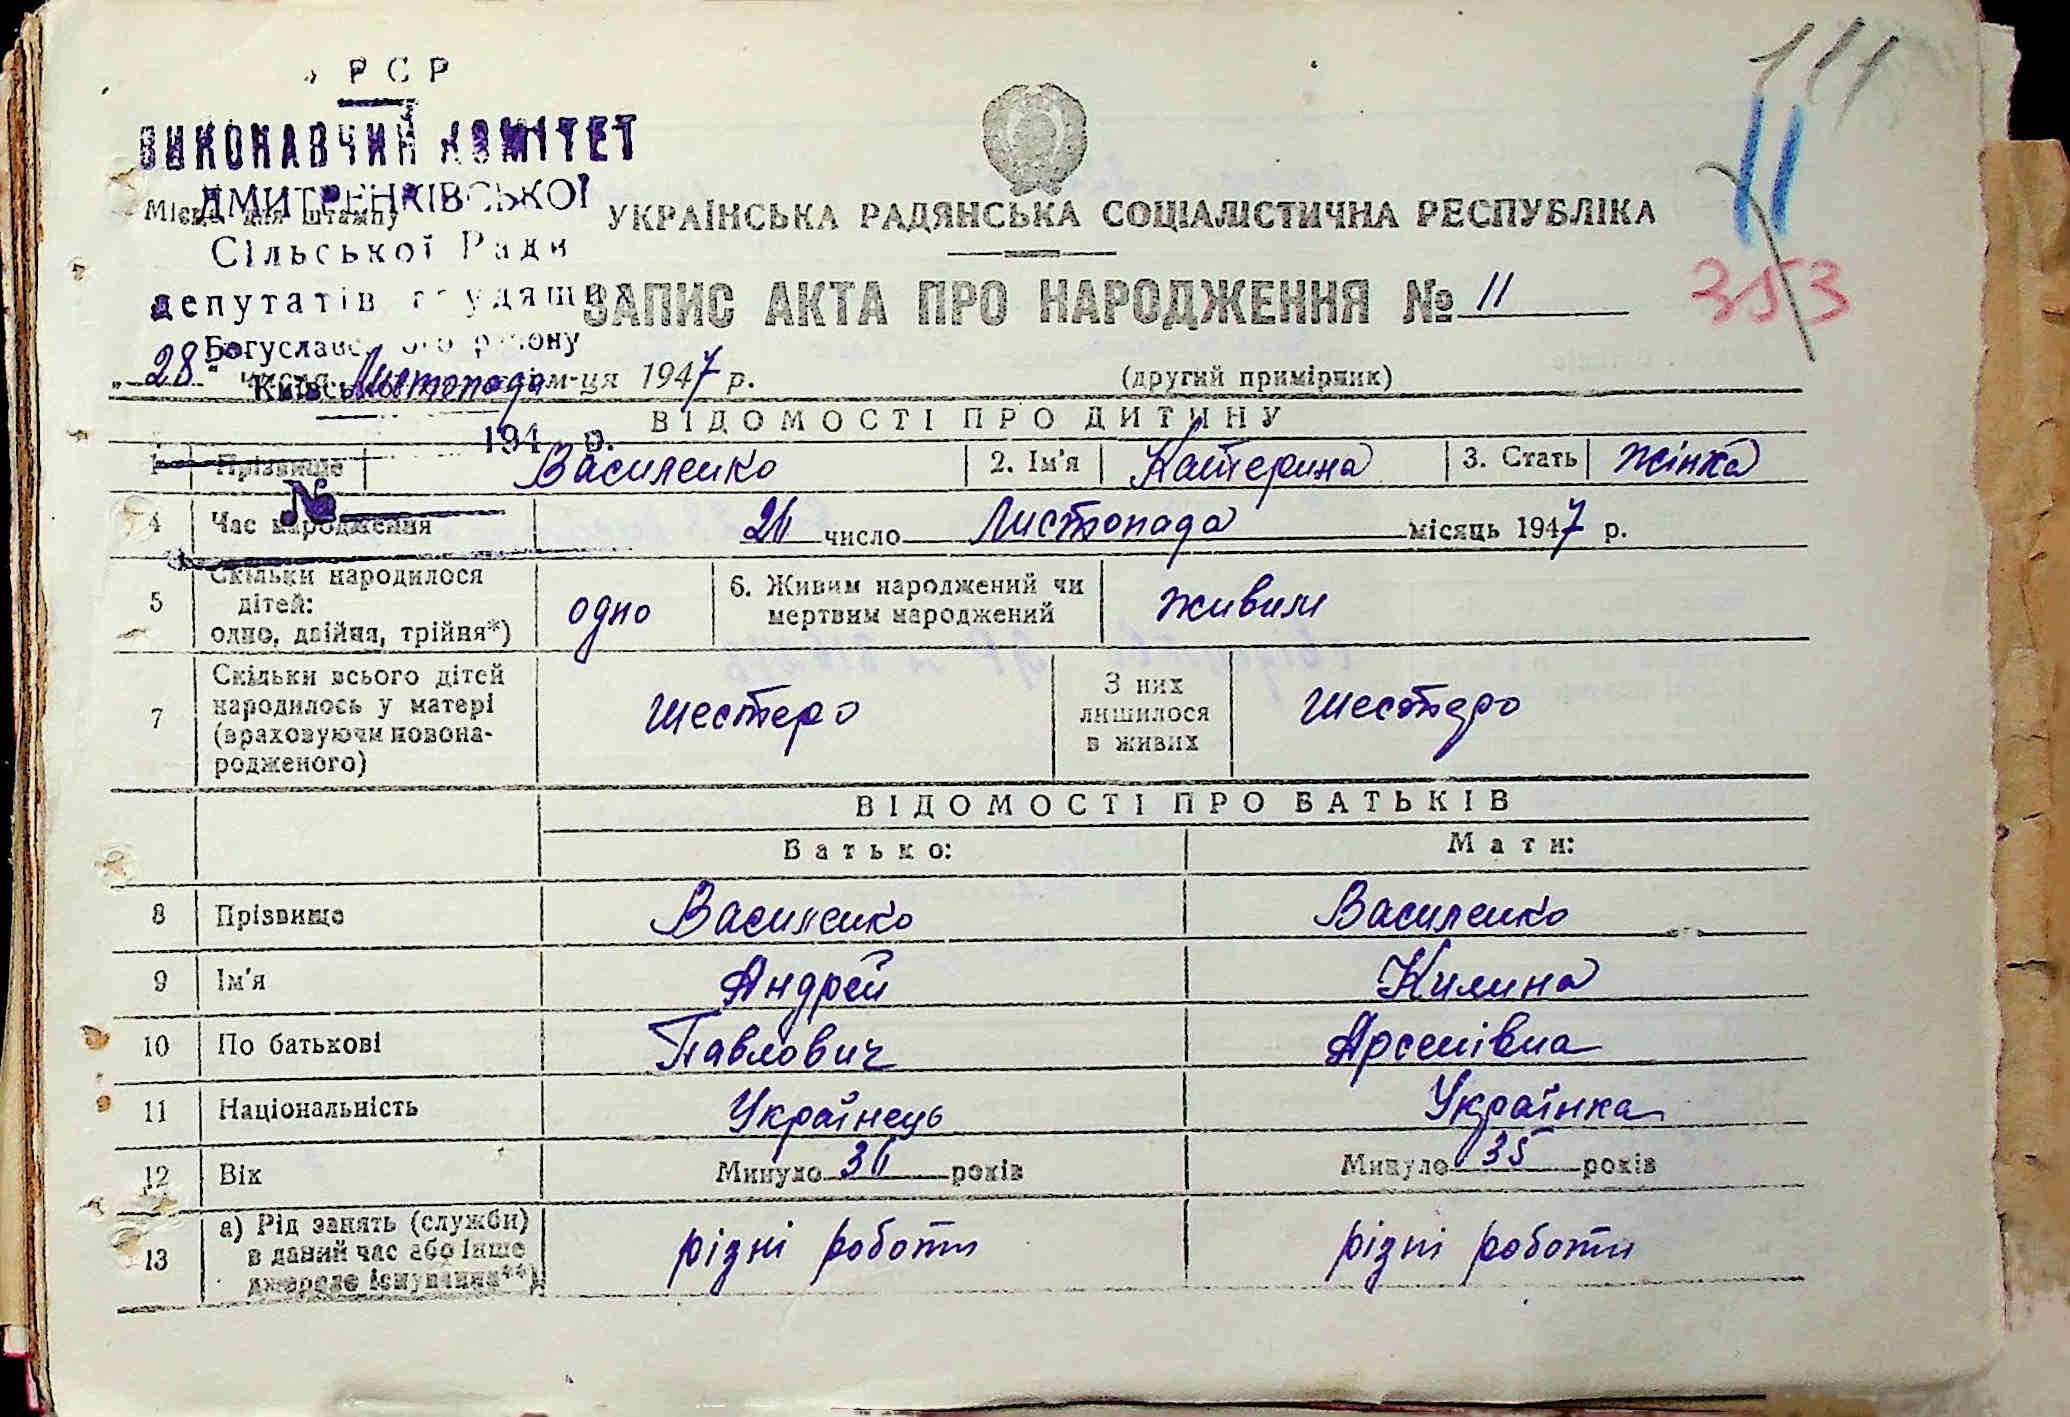 РСР
ВИКОНАВЧИЙ КОМІТЕТ
ДМИТРЕНКІВСЬКОЇ
Місце для штампу
Сільської Ради
депутатів трудящих
Богуславського району
Київської
194 р.
№
111
11
353
УКРАЇНСЬКА РАДЯНСЬКА СОЦІАЛІСТИЧНА РЕСПУБЛІКА
ЗАПИС АКТА ПРО НАРОДЖЕННЯ № 11
„28“ числа Листопада м-ця 1947 р. (другий примірник)
ВІДОМОСТІ ПРО ДИТИНУ
1 Прізвище Василенко 2. Ім'я Катерина 3. Стать жінка
4 Час народження 26 число Листопада місяць 1947 р.
5 Скільки народилося дітей: одно, двійня, трійня*) одно 6. Живим народжений чи мертвим народжений живим
7 Скільки всього дітей народилось у матері (враховуючи новонародженого) шестеро З них лишилося в живих шестеро
ВІДОМОСТІ ПРО БАТЬКІВ
Батько: Мати:
8 Прізвище Василенко Василенко
9 Ім'я Андрей Килина
10 По батькові Павлович Арсенівна
11 Національність Українець Українка
12 Вік Минуло 36 років Минуло 35 років
13 а) Рід занять (служби) в даний час або інше джерело існування**) різні роботи різні роботи